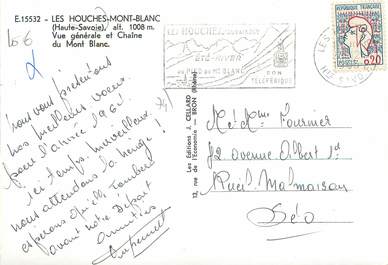 E.15532 - LES HOUCHES-MONT-BLANC
(Haute-Savoie), alt. 1008 m.
Vue générale et Chaîne
du Mont Blanc.
LES HOUCHES
ÉTÉ-HIVER
AU PIED DU MT BLANC
SON
TÉLÉFÉRIQUE
REPUBLIQUE FRANÇAISE
0,20
Les Editions J. CELLARD
13, rue de l'Economie - BRON (Rhône)
nous vous présentons
nos meilleurs voeux
pour l'année 196
ici temps merveilleux
nous attendons la neige !
espérons qu'elle tombera
avant notre Départ
amitiés
Mr et Mme Fournier
72 avenue Albert 1er
Rueil Malmaison
S & O